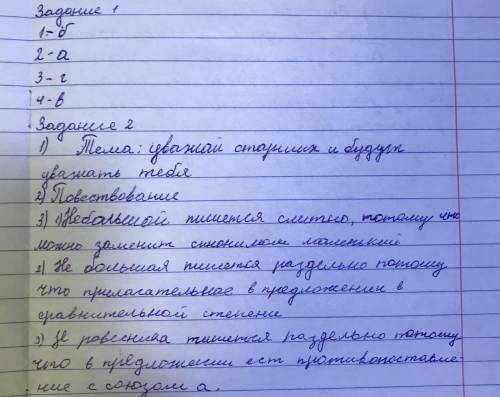 Задание 1
1-б
2-а
3-г
4-в
Задание 2
1) Тема: уважай старших и будут
уважать тебя
2) Повествование
3) 1) Небольшой пишется слитно, потому что
можно заменит синонимом маленький
2) Не большая пишется раздельно потому
что прилагательное в предложении в
сравнительной степении
3) Не ровесника пишется раздельно потому
что в предложении ест противопоставле-
ние с союзом а.